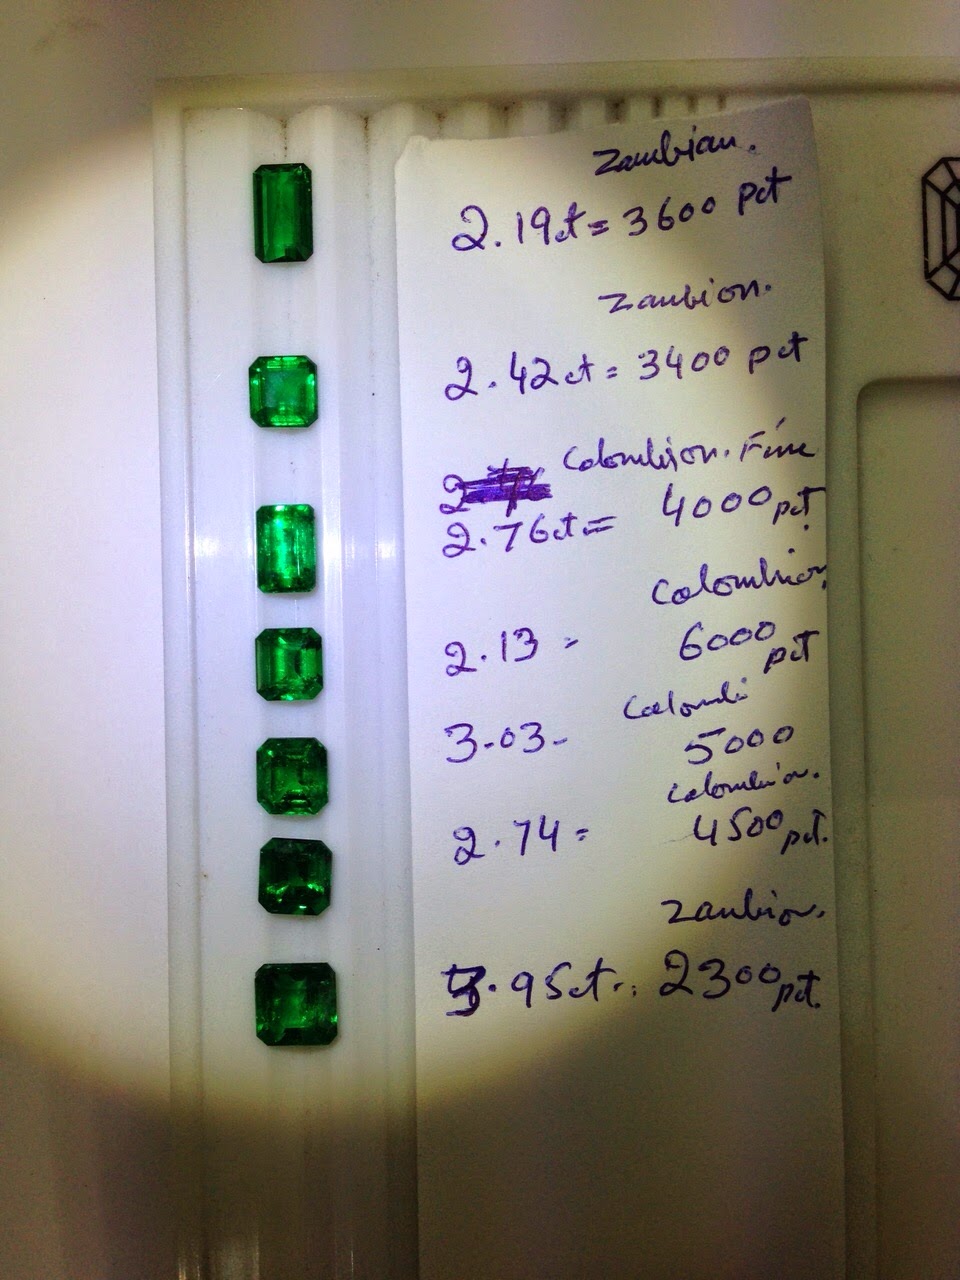 Zambian.
2.19ct = 3600 pct
Zambion.
2.42ct = 3400 pct
Colombion. Fine
2.76ct = 4000 pct
Colombion
2.13 = 6000 pct
Colombi
3.03 - 5000
Colombion.
2.74 = 4500 pct.
Zambion.
.95ct.. 2300 pct.